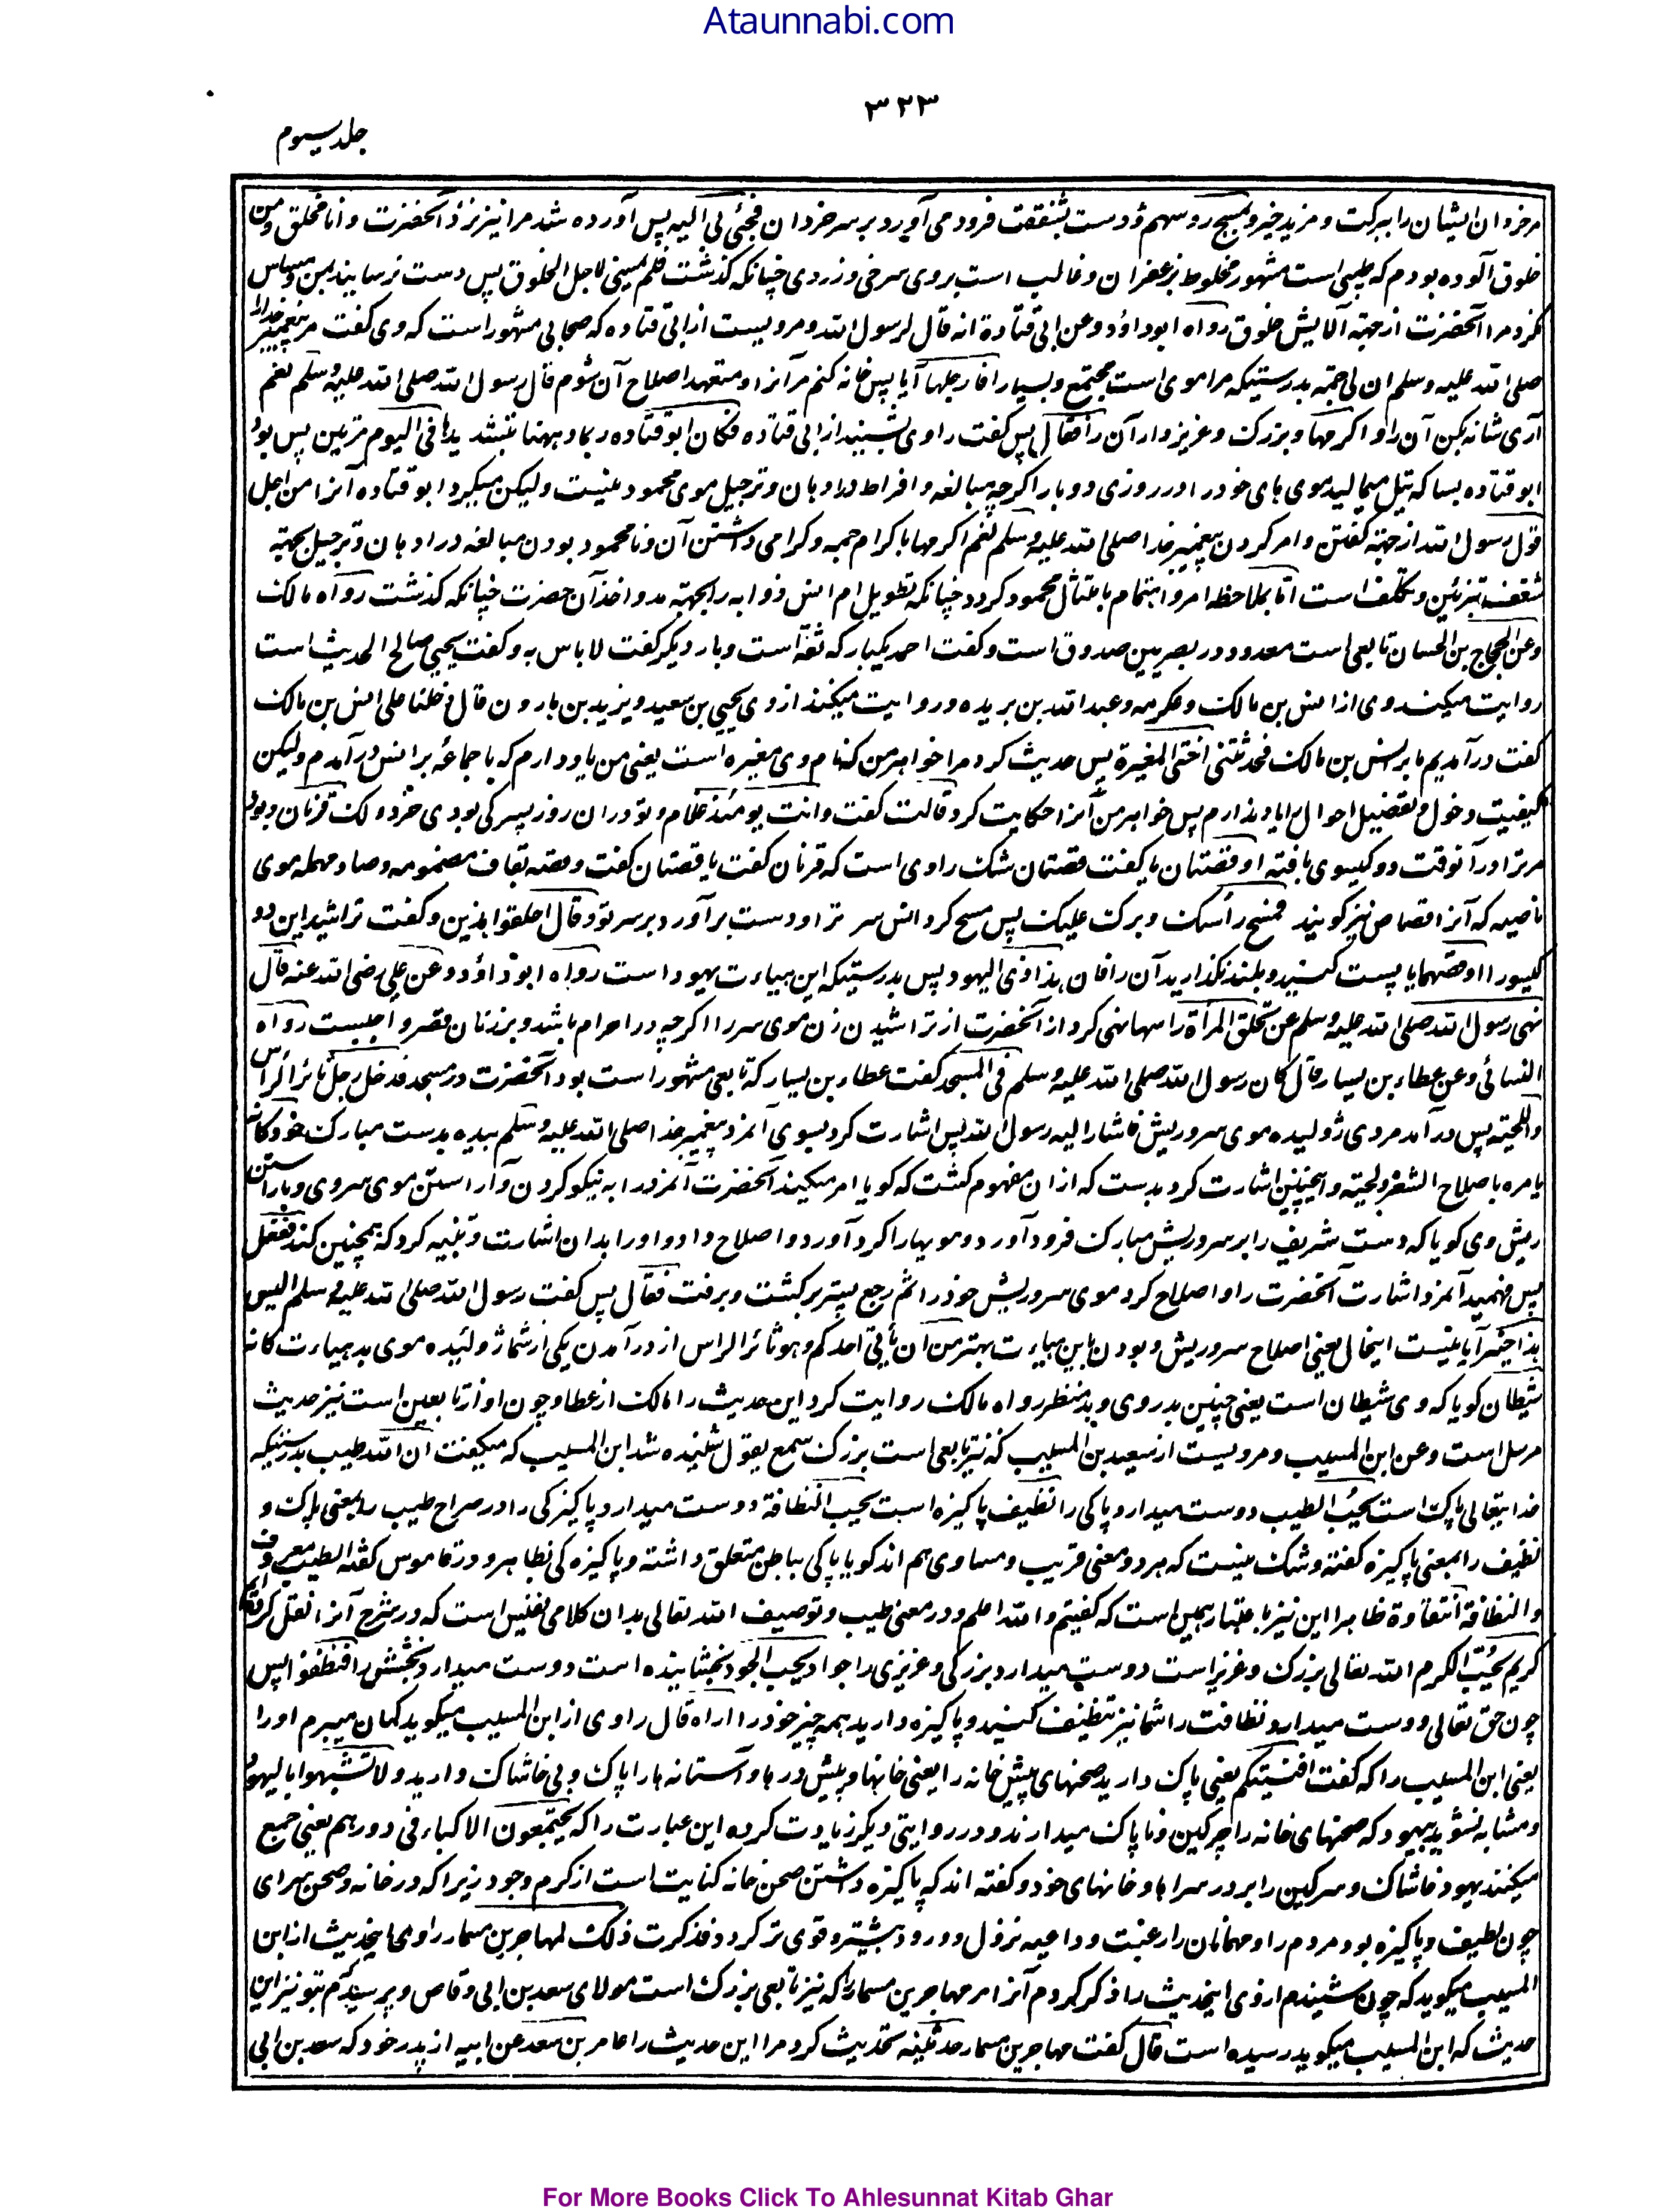 Ataunnabi.com
۳۲۳
جلد سیوم
مر خردان ایشان را ببرکت و مزید خیر و یمسح روسهم و دست بشفقت فرود می آورد بر سر خردان فجئ بی الیه پس آورده شد مرا نیز نزد آنحضرت وانا مخلق و من
خلوق آلوده بودم که طیبی است مشهور مخلوط بزعفران و غالب است بروی سرخی و زردی چنانکه گذشت فلم یمسنی لاجل الخلوق پس دست نرسانید بمن و مساس
نکرد مرا آنحضرت از جهته آلایش خلوق رواه ابوداؤد وعن ابی قتادة انه قال لرسول الله و مرویست از ابی قتاده که صحابی مشهور است که وی گفت مر پیغمبر خدا را
صلی الله علیه وسلم ان لی جمة بدرستیکه مرا موی است مجتمع و بسیار افارجلها آیا پس شانه کنم مرآنرا و متعهد اصلاح آن شوم قال رسول الله صلی الله علیه وسلم نعم
آری شانه بکن آن را و اکرمها و بزرک و عزیز دار آن را قال پس گفت راوی شنیده از ابی قتاده فکان ابو قتاده ربما دهنها فی الیوم مرتین پس بود
ابو قتاده بسا که بتیل میمالید موی های خود را در روزی دو بار اگرچه مبالغه و افراط در ادهان و ترجیل موی محمود نیست ولیکن میکرد ابو قتاده آنرا من اجل
قول رسول الله از جهته گفتن و امر کردن پیغمبر خدا صلی الله علیه وسلم نعم اکرمها باکرام جمه و گرامی داشتن آن و نا محمود بودن مبالغه در ادهان و ترجیل بجهته
شغف بتزئین و تکلف است اما بملاحظه امر و اهتمام بامتثال محمود گردد چنانکه تطویل ام انس ذوابه را بجهته مد و اخذ آن حضرت چنانکه گذشت رواه مالک
وعن الحجاج بن الحسان تابعی است معدود در بصریین صدوق است و گفت احمد یکبار که ثقه است و بار دیگر گفت لا باس به و گفت یحیی صالح الحدیث است
روایت میکند وی از انس بن مالک و عکرمه و عبد الله بن بریده و روایت میکنند از وی یحیی بن سعید و یزید بن هارون قال دخلنا علی انس بن مالک
گفت در آمدیم ما بر انس بن مالک فحدثتنی اختی المغیرة پس حدیث کرد مرا خواهر من که نام وی مغیره است یعنی من یاد دارم که با جماعه بر انس در آمدم ولیکن
کیفیت دخول و تفصیل احوال را یاد ندارم پس خواهر من آنرا حکایت کرد قالت گفت وانت یومئذ غلام و تو در ان روز پسرکی بودی خرد و لک قرنان و بود
مر ترا در آنوقت دو گیسوی بافته او قصتان یا گفت قصتان شک راوی است که قرنان گفت یا قصتان گفت و قصه بقاف مضمومه و صاد مهمله موی
ناصیه که آنرا قصاص نیز گویند فمسح رأسک وبرک علیک پس مسح کرد انس سر ترا و دست برآورد بر سر تو وقال احلقوا هذین و گفت تراشید این دو
گیسو را او قصوهما یا پست کنید و بلند نگذارید آن را فان هذا زی الیهود پس بدرستیکه این هیأت یهود است رواه ابوداؤد وعن علی رضی الله عنه قال
نهی رسول الله صلی الله علیه وسلم عن تحلق المرأة رأسها نهی کرد از آنحضرت از تراشیدن زن موی سر را اگرچه در احرام باشد و بر زنان قصر واجبست رواه
النسائی وعن عطاء بن یسار قال کان رسول الله صلی الله علیه وسلم فی المسجد گفت عطاء بن یسار که تابعی مشهور است بود آنحضرت در مسجد فدخل رجل ثائر الرأس
واللحیة پس در آمد مردی ژولیده موی سر و ریش فاشار الیه رسول الله پس اشارت کرد بسوی آنمرد پیغمبر خدا صلی الله علیه وسلم بیده بدست مبارک خود کانه
یامره باصلاح الشعر ولحیته و اینچنین اشارت کرد بدست که ازان مفهوم گشت که گویا امر میکند آنحضرت آنمرد را به نیکو کردن و آراستن موی سر وی و باراستن
ریش وی گویا که دست شریف را بر سر و ریش مبارک فرود آورد و مویها را گرد آورد و اصلاح داد و او را بدان اشارت و تنبیه کرد که همچنین کند ففعل
پس فهمید آنمرد اشارت آنحضرت را و اصلاح کرد موی سر و ریش خود را ثم رجع پستر برگشت و برفت فقال پس گفت رسول الله صلی الله علیه وسلم الیس
هذا خیرا آیا نیست اینحال یعنی اصلاح سر و ریش و بودن باین هیأت بهتر من ان یأتی احدکم وهو ثائر الراس از در آمدن یکی از شما ژولیده موی بد هیأت کانه
شیطان گویا که وی شیطان است یعنی چنین بد روی و بد منظر رواه مالک روایت کرد این حدیث را مالک از عطا و چون او از تابعین است نیز حدیث
مرسل است وعن ابن المسیب و مرویست از سعید بن المسیب که نیز تابعی است بزرک سمع یقول شنیده شد ابن المسیب که میگفت ان الله طیب بدرستیکه
خدایتعالی پاک است یحب الطیب دوست میدارد پاکی را نظیف پاکیزه است یحب النظافة دوست میدارد پاکیزگی را در صراح طیب را بمعنی پاک و
نظیف را بمعنی پاکیزه گفته و شک نیست که هر دو معنی قریب و مساوی هم اند گویا پاکی بباطن متعلق داشته و پاکیزه کی بظاهر و در قاموس گفته الطیب معروف
والنظافة النقاوة ظاهرا این نیز باعتبار همین است که گفتیم والله اعلم و در معنی طیب و توصیف الله تعالی بدان کلامی نفیس است که در شرح آنرا نقل کرده ایم
کریم یحب الکرم الله تعالی بزرک و عزیز است دوست میدارد بزرگی و عزیزی را جواد یحب الجود بخشاینده است دوست میدارد بخشش را فنظفوا پس
چون حق تعالی دوست میدارد نظافت را شما نیز تنظیف کنید و پاکیزه دارید همه چیز خود را اراه قال راوی از ابن المسیب میگوید گمان میبرم او را
یعنی ابن المسیب را که گفت افنیتکم یعنی پاک دارید صحنهای پیش خانه را یعنی خانها و پیش درها و آستانه ها را پاک و بی خاشاک دارید ولا تشبهوا بالیهود
و مشابه نشوید بیهود که صحنهای خانه را چرکین و نا پاک میدارند و در روایتی دیگر زیادت کرده این عبارت را که یجتمعون الاکباء فی دورهم یعنی جمع
میکنند یهود خاشاک و سرگین را بر در سراها و خانهای خود و گفته اند که پاکیزه داشتن صحن خانه کنایت است از کرم وجود زیرا که در خانه و صحن سرای
چون لطیف و پاکیزه بود مردم را و مهمانان را رغبت و داعیه نزول و ورود بیشتر و قوی تر گردد فذکرت ذلک لمهاجر بن مسمار راوی اینحدیث از ابن
المسیب میگوید که چون شنیدم از وی اینحدیث را ذکر کردم آنرا مر مهاجر بن مسمار را که نیز تابعی بزرک است مولای سعد بن ابی وقاص و پرسیدم بتو نیز این
حدیث که ابن المسیب میگوید رسیده است قال گفت مهاجر بن مسمار حدثنیه تحدیث کرد مرا این حدیث را عامر بن سعد عن ابیه از پدر خود که سعد بن ابی
For More Books Click To Ahlesunnat Kitab Ghar